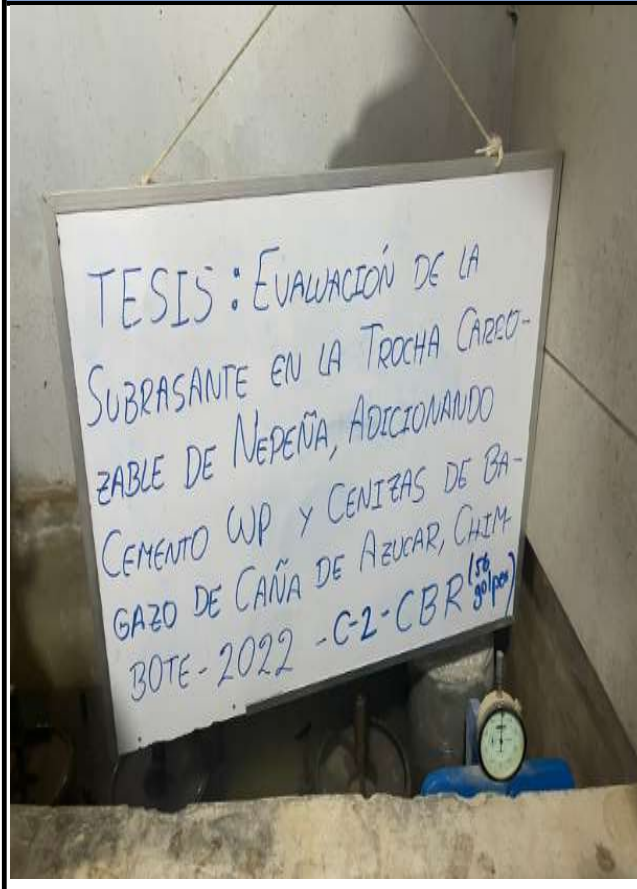 TESIS: EVALUACIÓN DE LA
SUBRASANTE EN LA TROCHA CARRO-
ZABLE DE NEPEÑA, ADICIONANDO
CEMENTO WP Y CENIZAS DE BA-
GAZO DE CAÑA DE AZUCAR, CHIM
BOTE - 2022 - C-2 - CBR (56 golpes)